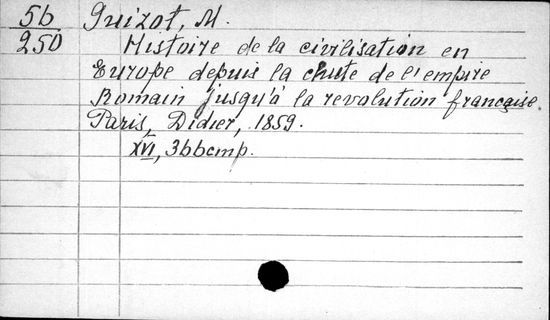 56 Guizot, M.
250 Histoire de la civilisation en
Europe depuis la chute de l'empire
Romain jusqu'à la revolution française.
Paris, Didier, 1859.
XVI, 366 cmp.